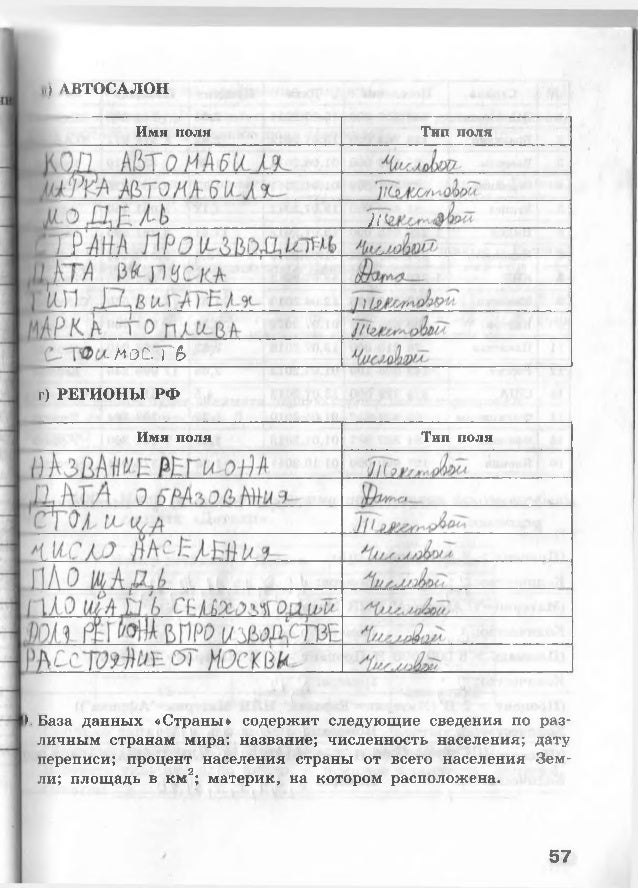 в) АВТОСАЛОН
Имя поля Тип поля
КОД АВТОМАБИЛЯ Числовой
МАРКА АВТОМАБИЛЯ Текстовой
МОДЕЛЬ Текстовой
СТРАНА ПРОИЗВОДИТЕЛЬ Числовой
ДАТА ВЫПУСКА Дата
ТИП ДВИГАТЕЛЯ Текстовой
МАРКА ТОПЛИВА Текстовой
СТОИМОСТЬ Числовой
г) РЕГИОНЫ РФ
Имя поля Тип поля
НАЗВАНИЕ РЕГИОНА Текстовой
ДАТА ОБРАЗОВАНИЯ Дата
СТОЛИЦА Текстовой
ЧИСЛО НАСЕЛЕНИЯ Числовой
ПЛОЩАДЬ Числовой
ПЛОЩАДЬ СЕЛЬХОЗУГОДИЙ Числовой
ДОЛЯ РЕГИОНА В ПРОИЗВОДСТВЕ Числовой
РАССТОЯНИЕ ОТ МОСКВЫ Числовой
База данных «Страны» содержит следующие сведения по раз-
личным странам мира: название; численность населения; дату
переписи; процент населения страны от всего населения Зем-
ли; площадь в км²; материк, на котором расположена.
57